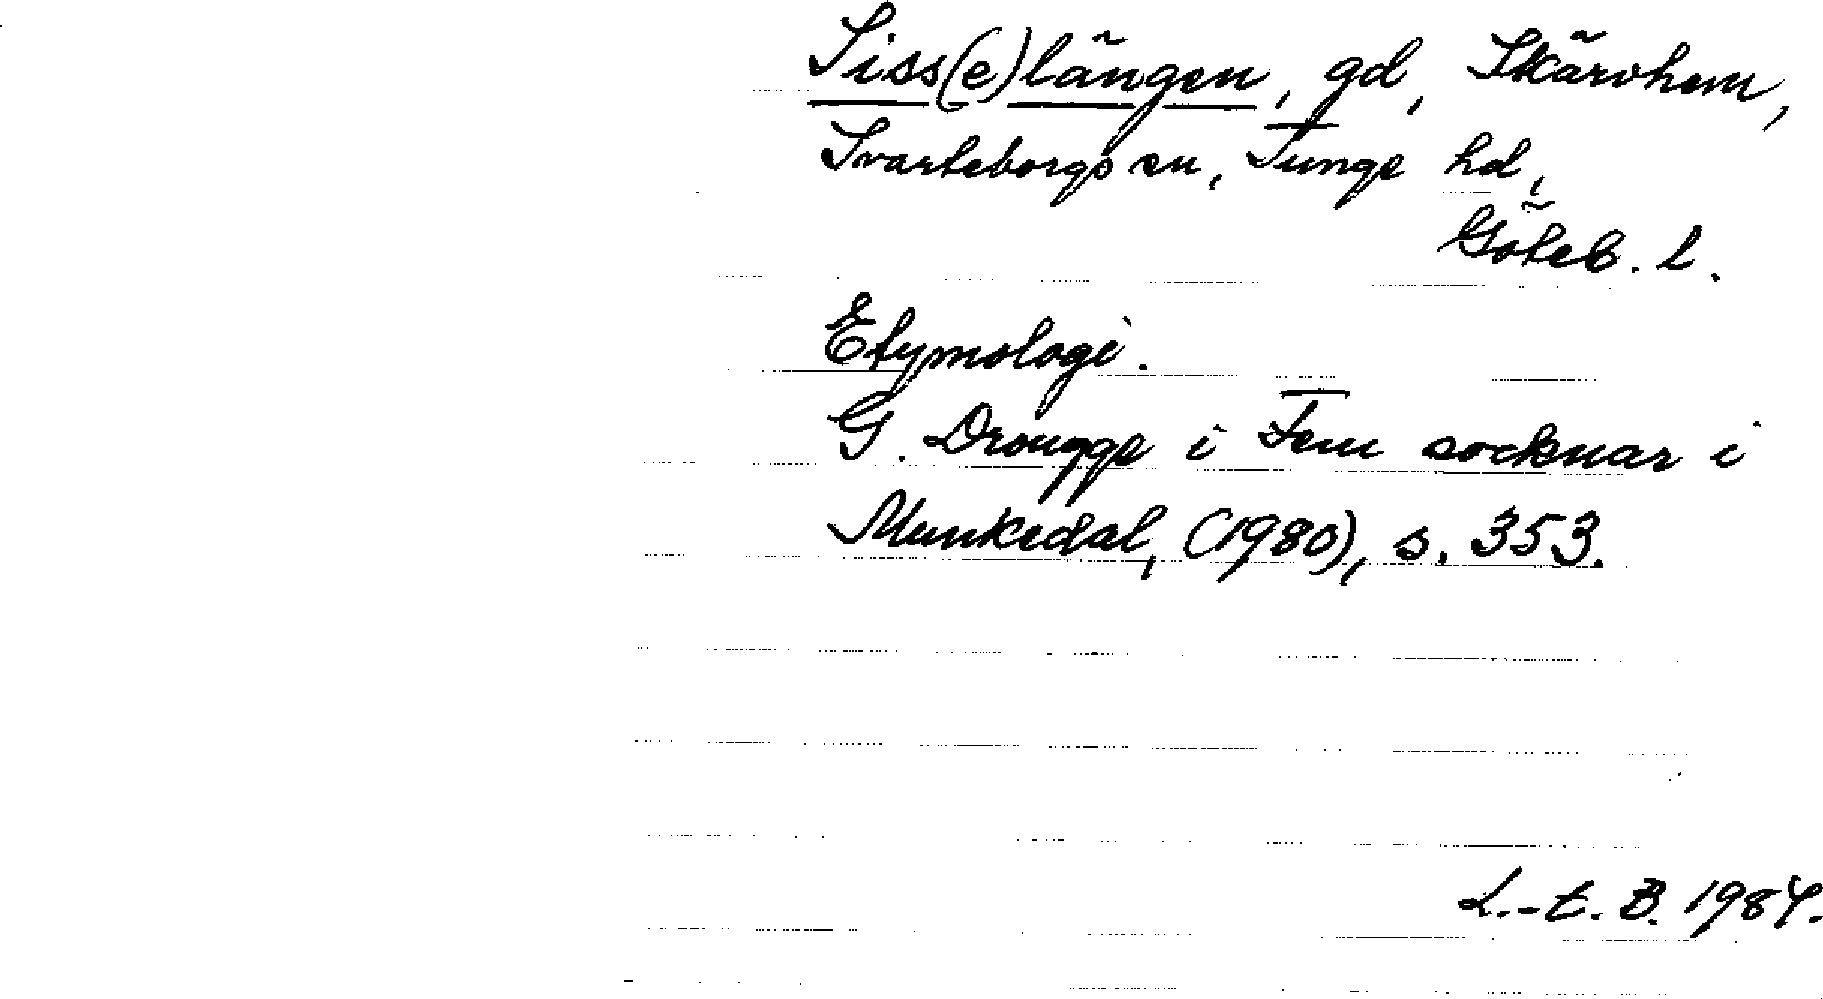 Siss(e)längen, gd, Skärvhem,
Svarteborgs sn, Tunge hd,
Göteb. l.
Etymologi.
G. Drougge i Fem socknar i
Munkedal, (1980), s. 353.
L.-E. B. 1984.